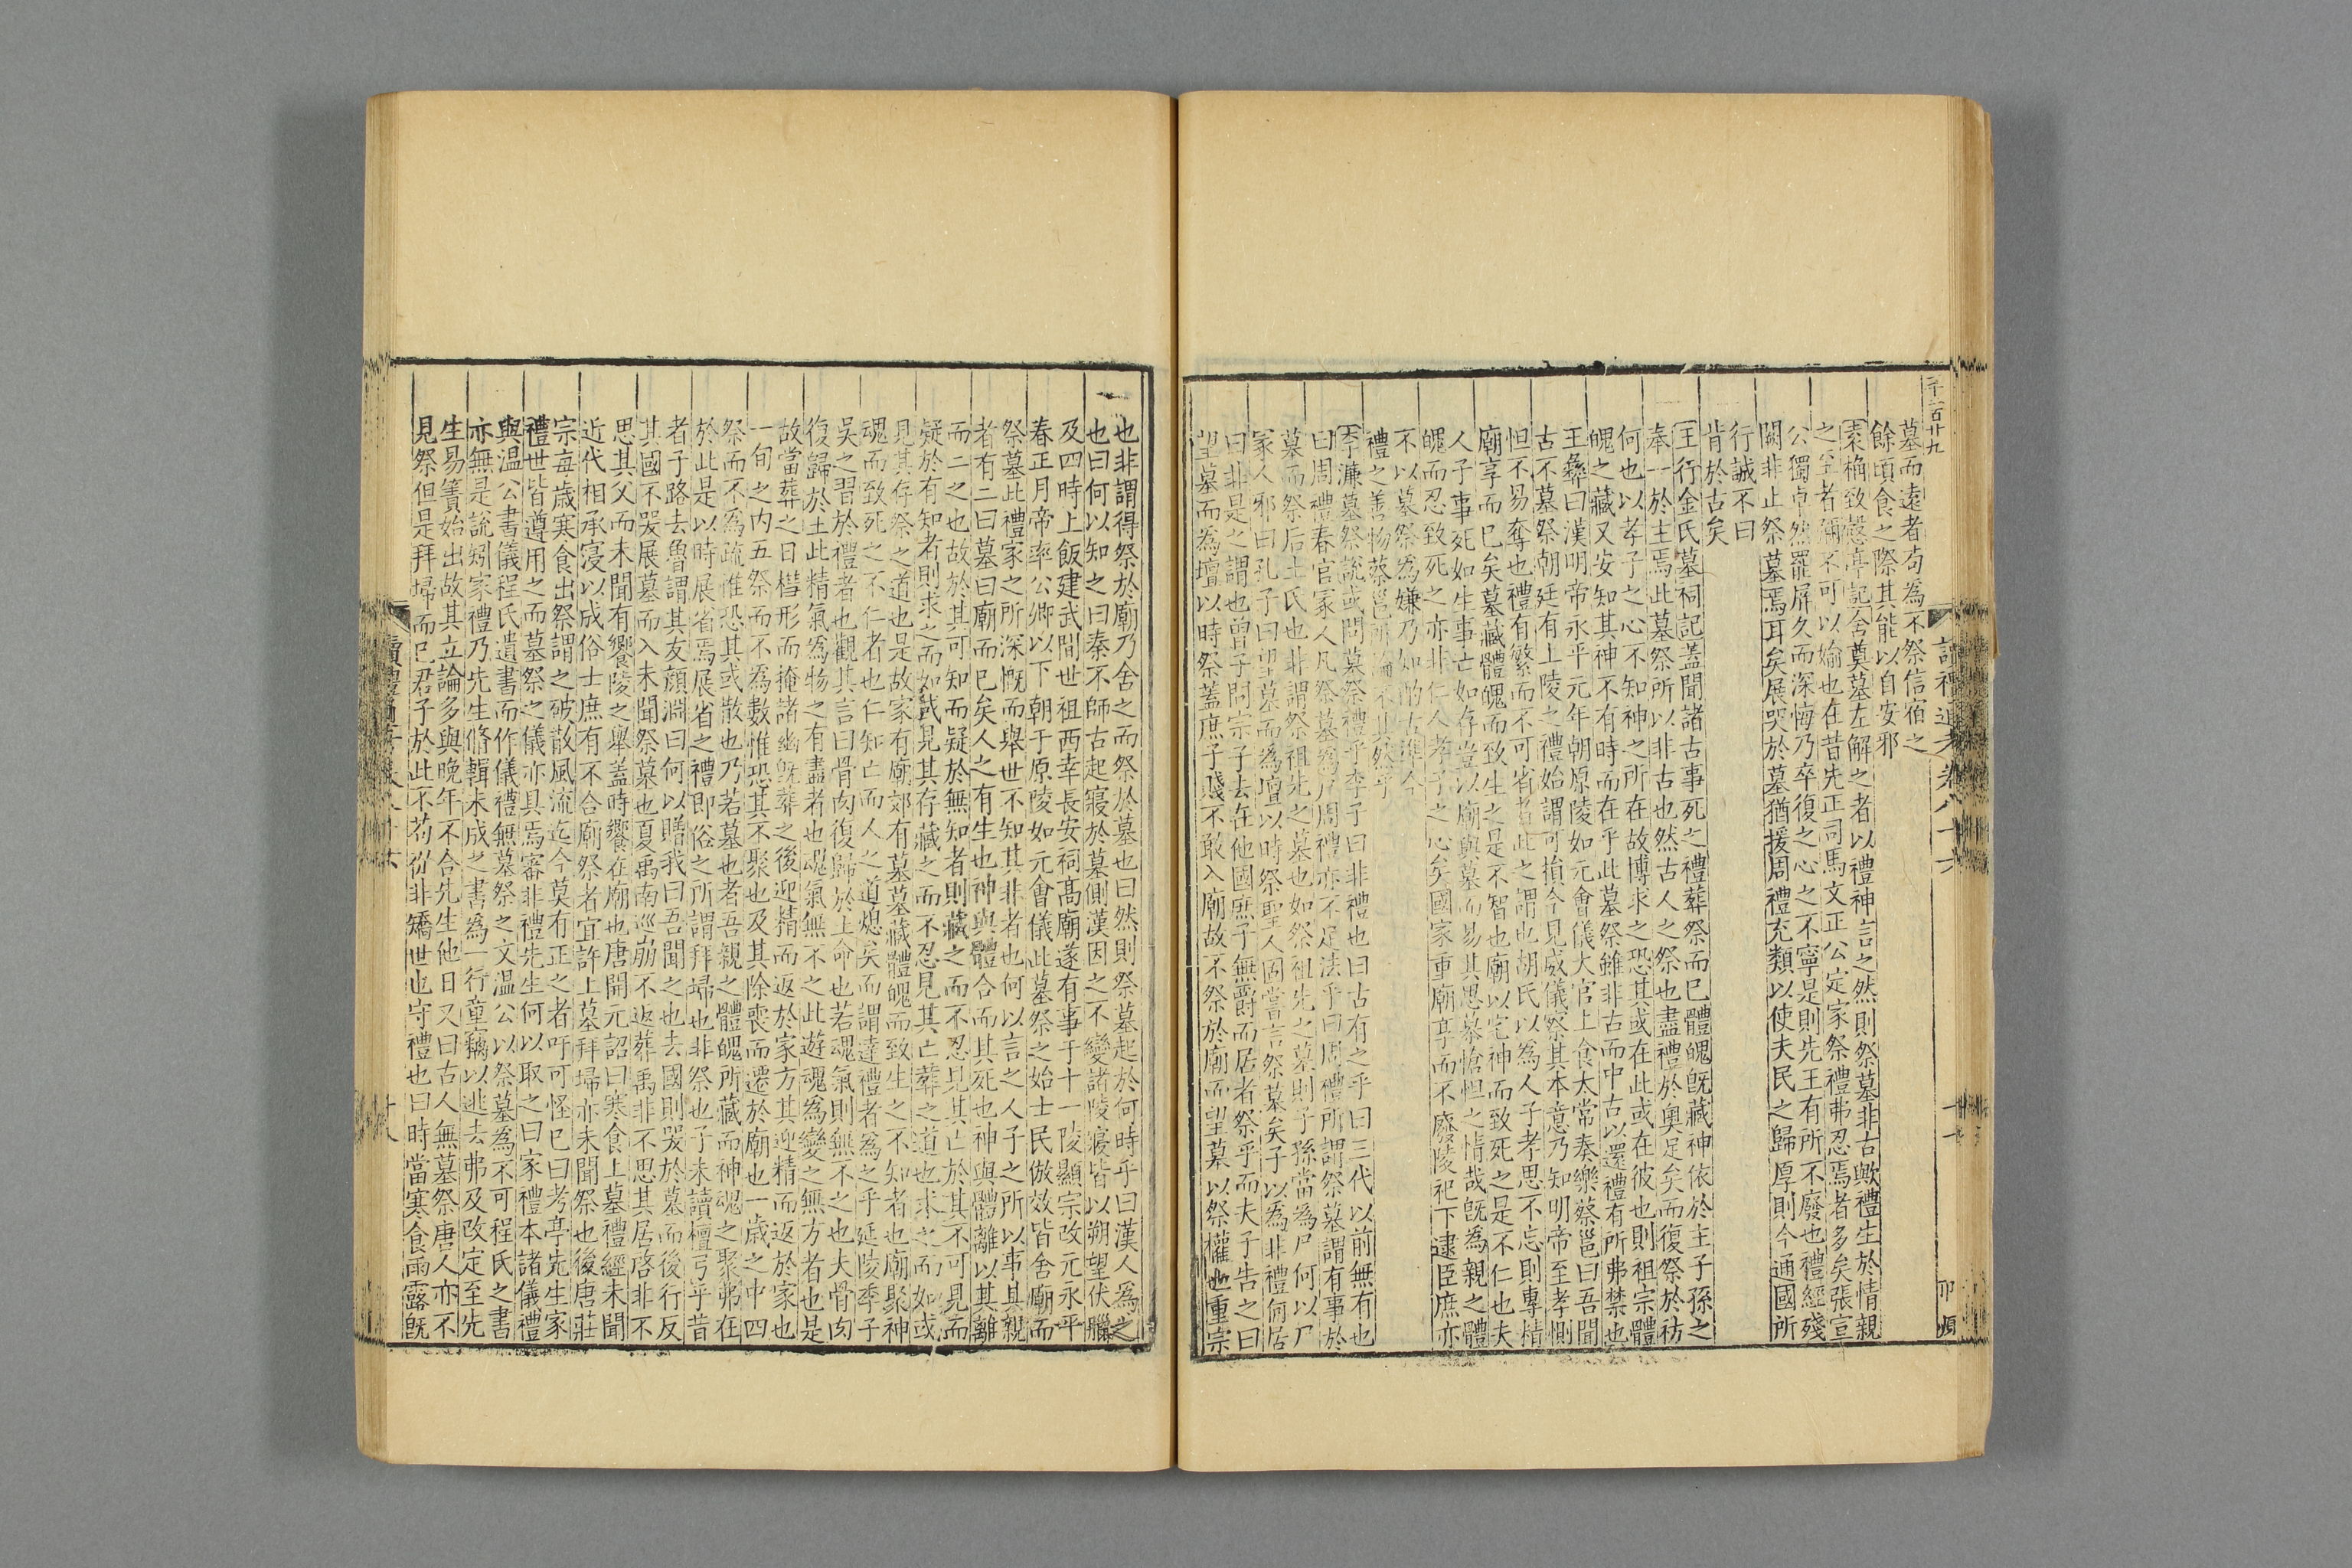 千二百廿九
讀禮通考卷八十六
墓而遠者苟為不祭信宿之
餘頃食之際其能以自安邪
桼桷致慤亭記舍奠墓左解之者以禮神言之然則祭墓非古歟禮生於情親
之至者彌不可以媮也在昔先正司馬文正公定家祭禮弗忍焉者多矣張宣
公獨卓然罷屏久而深悔乃卒復之心之不寧是則先王有所不廢也禮經殘
闕非止祭墓焉耳矣展哭於墓猶援周禮充類以使夫民之歸厚則今通國所
行誠不曰
肯於古矣
王行金氏墓祠記蓋聞諸古事死之禮葬祭而巳體魄旣藏神依於主子孫之
奉一於主焉此墓祭所以非古也然古人之祭也盡禮於奧足矣而復祭於祊
何也以孝子之心不知神之所在故博求之恐其或在此或在彼也則祖宗體
魄之藏又安知其神不有時而在乎此墓祭雖非古而中古以還禮有所弗禁也
王彝曰漢明帝永平元年朝原陵如元會儀大官上食太常奏樂蔡邕曰吾聞
古不墓祭朝廷有上陵之禮始謂可損今見威儀察其本意乃知明帝至孝惻
怛不易奪也禮有繁而不可省者此之謂也胡氏以為人子孝思不忘則專精
廟享而巳矣墓藏體魄而致生之是不智也廟以宅神而致死之是不仁也夫
人子事死如生事亡如存豈以廟與墓而易其思慕愴怛之情哉旣為親之體
魄而忍致死之亦非仁人孝子之心矣國家重廟享而不廢陵祀下逮臣庶亦
不以墓祭為嫌乃如酌古準今
禮之善物蔡邕所論不其然乎
李濂墓祭說或問墓祭禮乎李子曰非禮也曰古有之乎曰三代以前無有也
曰周禮春官冢人凡祭墓為尸周禮亦不足法乎曰周禮所謂祭墓謂有事於
墓而祭后土氏也非謂祭祖先之墓也如祭祖先之墓則子孫當為尸何以尸
冢人邪曰孔子曰望墓而為壇以時祭聖人固嘗言祭墓矣子以為非禮何居
曰非是之謂也曾子問宗子去在他國庶子無爵而居者祭乎而夫子告之曰
望墓而為壇以時祭蓋庶子賤不敢入廟故不祭於廟而望墓以祭權也重宗
也非謂得祭於廟乃舍之而祭於墓也曰然則祭墓起於何時乎曰漢人為之
也曰何以知之曰秦不師古起寢於墓側漢因之不變諸陵寢皆以朔望伏臘
及四時上飯建武間世祖西幸長安祠高廟遂有事于十一陵顯宗改元永平
春正月帝率公卿以下朝于原陵如元會儀此墓祭之始士民倣效皆舍廟而
祭墓此禮家之所深慨而舉世不知其非者也何以言之人子之所以事其親
者有二曰墓曰廟而巳矣人之有生也神與體合而其死也神與體離以其離
而二之也故於其可知而疑於無知者則藏之而不忍見其亡於其不可見而
疑於有知者則求之而如或見其存藏之而不忍見其亡葬之道也求之而如或
見其存祭之道也是故家有廟郊有墓墓藏體魄而致生之不知者也廟聚神
魂而致死之不仁者也仁知亡而人之道熄矣而謂達禮者為之乎延陵季子
吳之習於禮者也觀其言曰骨肉復歸於土命也若魂氣則無不之也夫骨肉
復歸於土此精氣為物之有盡者也魂氣無不之此遊魂為變之無方者也是
故當葬之日槥形而掩諸幽旣葬之後迎精而返於家方其迎精而返於家也
一旬之內五祭而不為數惟恐其不聚也及其除喪而遷於廟也一歲之中四
祭而不為疏惟恐其或散也乃若墓也者吾親之體魄所藏而神魂之聚弗在
於此是以時展省焉展省之禮即俗之所謂拜埽也非祭也子未讀檀弓乎昔
者子路去魯謂其友顏淵曰何以贈我曰吾聞之也去國則哭於墓而後行反
其國不哭展墓而入未聞祭墓也夏禹南巡崩不返葬禹非不思其居啓非不
思其父而未聞有饗陵之舉蓋時饗在廟也唐開元詔曰寒食上墓禮經未聞
近代相承寖以成俗士庶有不合廟祭者宜許上墓拜埽亦未聞祭也後唐莊
宗每歲寒食出祭謂之破散風流迄今莫有正之者吁可怪巳曰考亭先生家
禮世皆遵用之而墓祭之儀亦具焉審非禮先生何以取之曰家禮本諸儀禮
與溫公書儀程氏遺書而作儀禮無墓祭之文溫公以祭墓為不可程氏之書
亦無是說矧家禮乃先生脩輯未成之書為一行童竊以逃去弗及改定至先
生易簀始出故其立論多與晚年不合先生他日又曰古人無墓祭唐人亦不
見祭但是拜埽而巳君子於此不茍從非矯世也守禮也曰時當寒食雨露旣